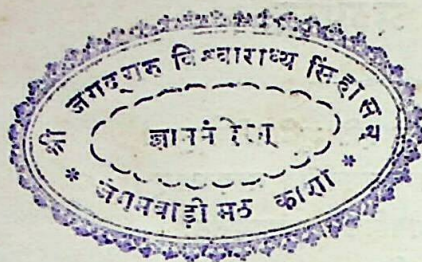 श्री जगद्गुरु विश्वाराध्य सिंहासन
ज्ञानमं
* जंगमवाड़ी मठ काशी *